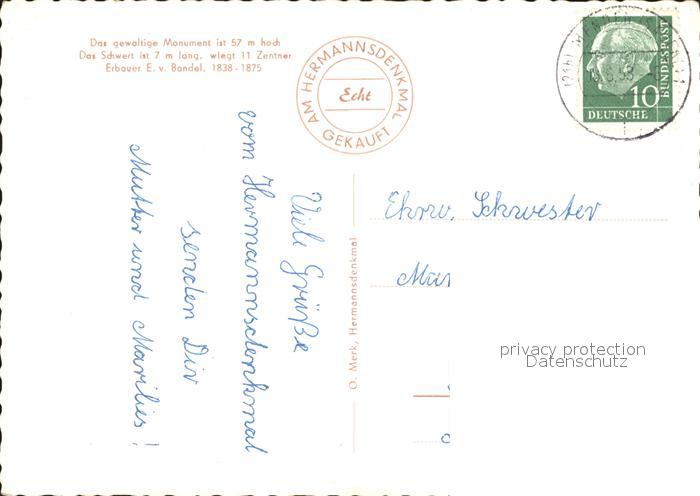 Das gewaltige Monument ist 57 m hoch
Das Schwert ist 7 m lang, wiegt 11 Zentner
Erbauer E. v. Bandel, 1838-1875
AM HERMANNSDENKMAL
Echt
GEKAUFT
10
DEUTSCHE
BUNDESPOST
Viele Grüße
vom Hermannsdenkmal
senden Dir
Mutter und Marilies!
O. Merk, Hermannsdenkmal
Ehrw. Schwester
privacy protection
Datenschutz